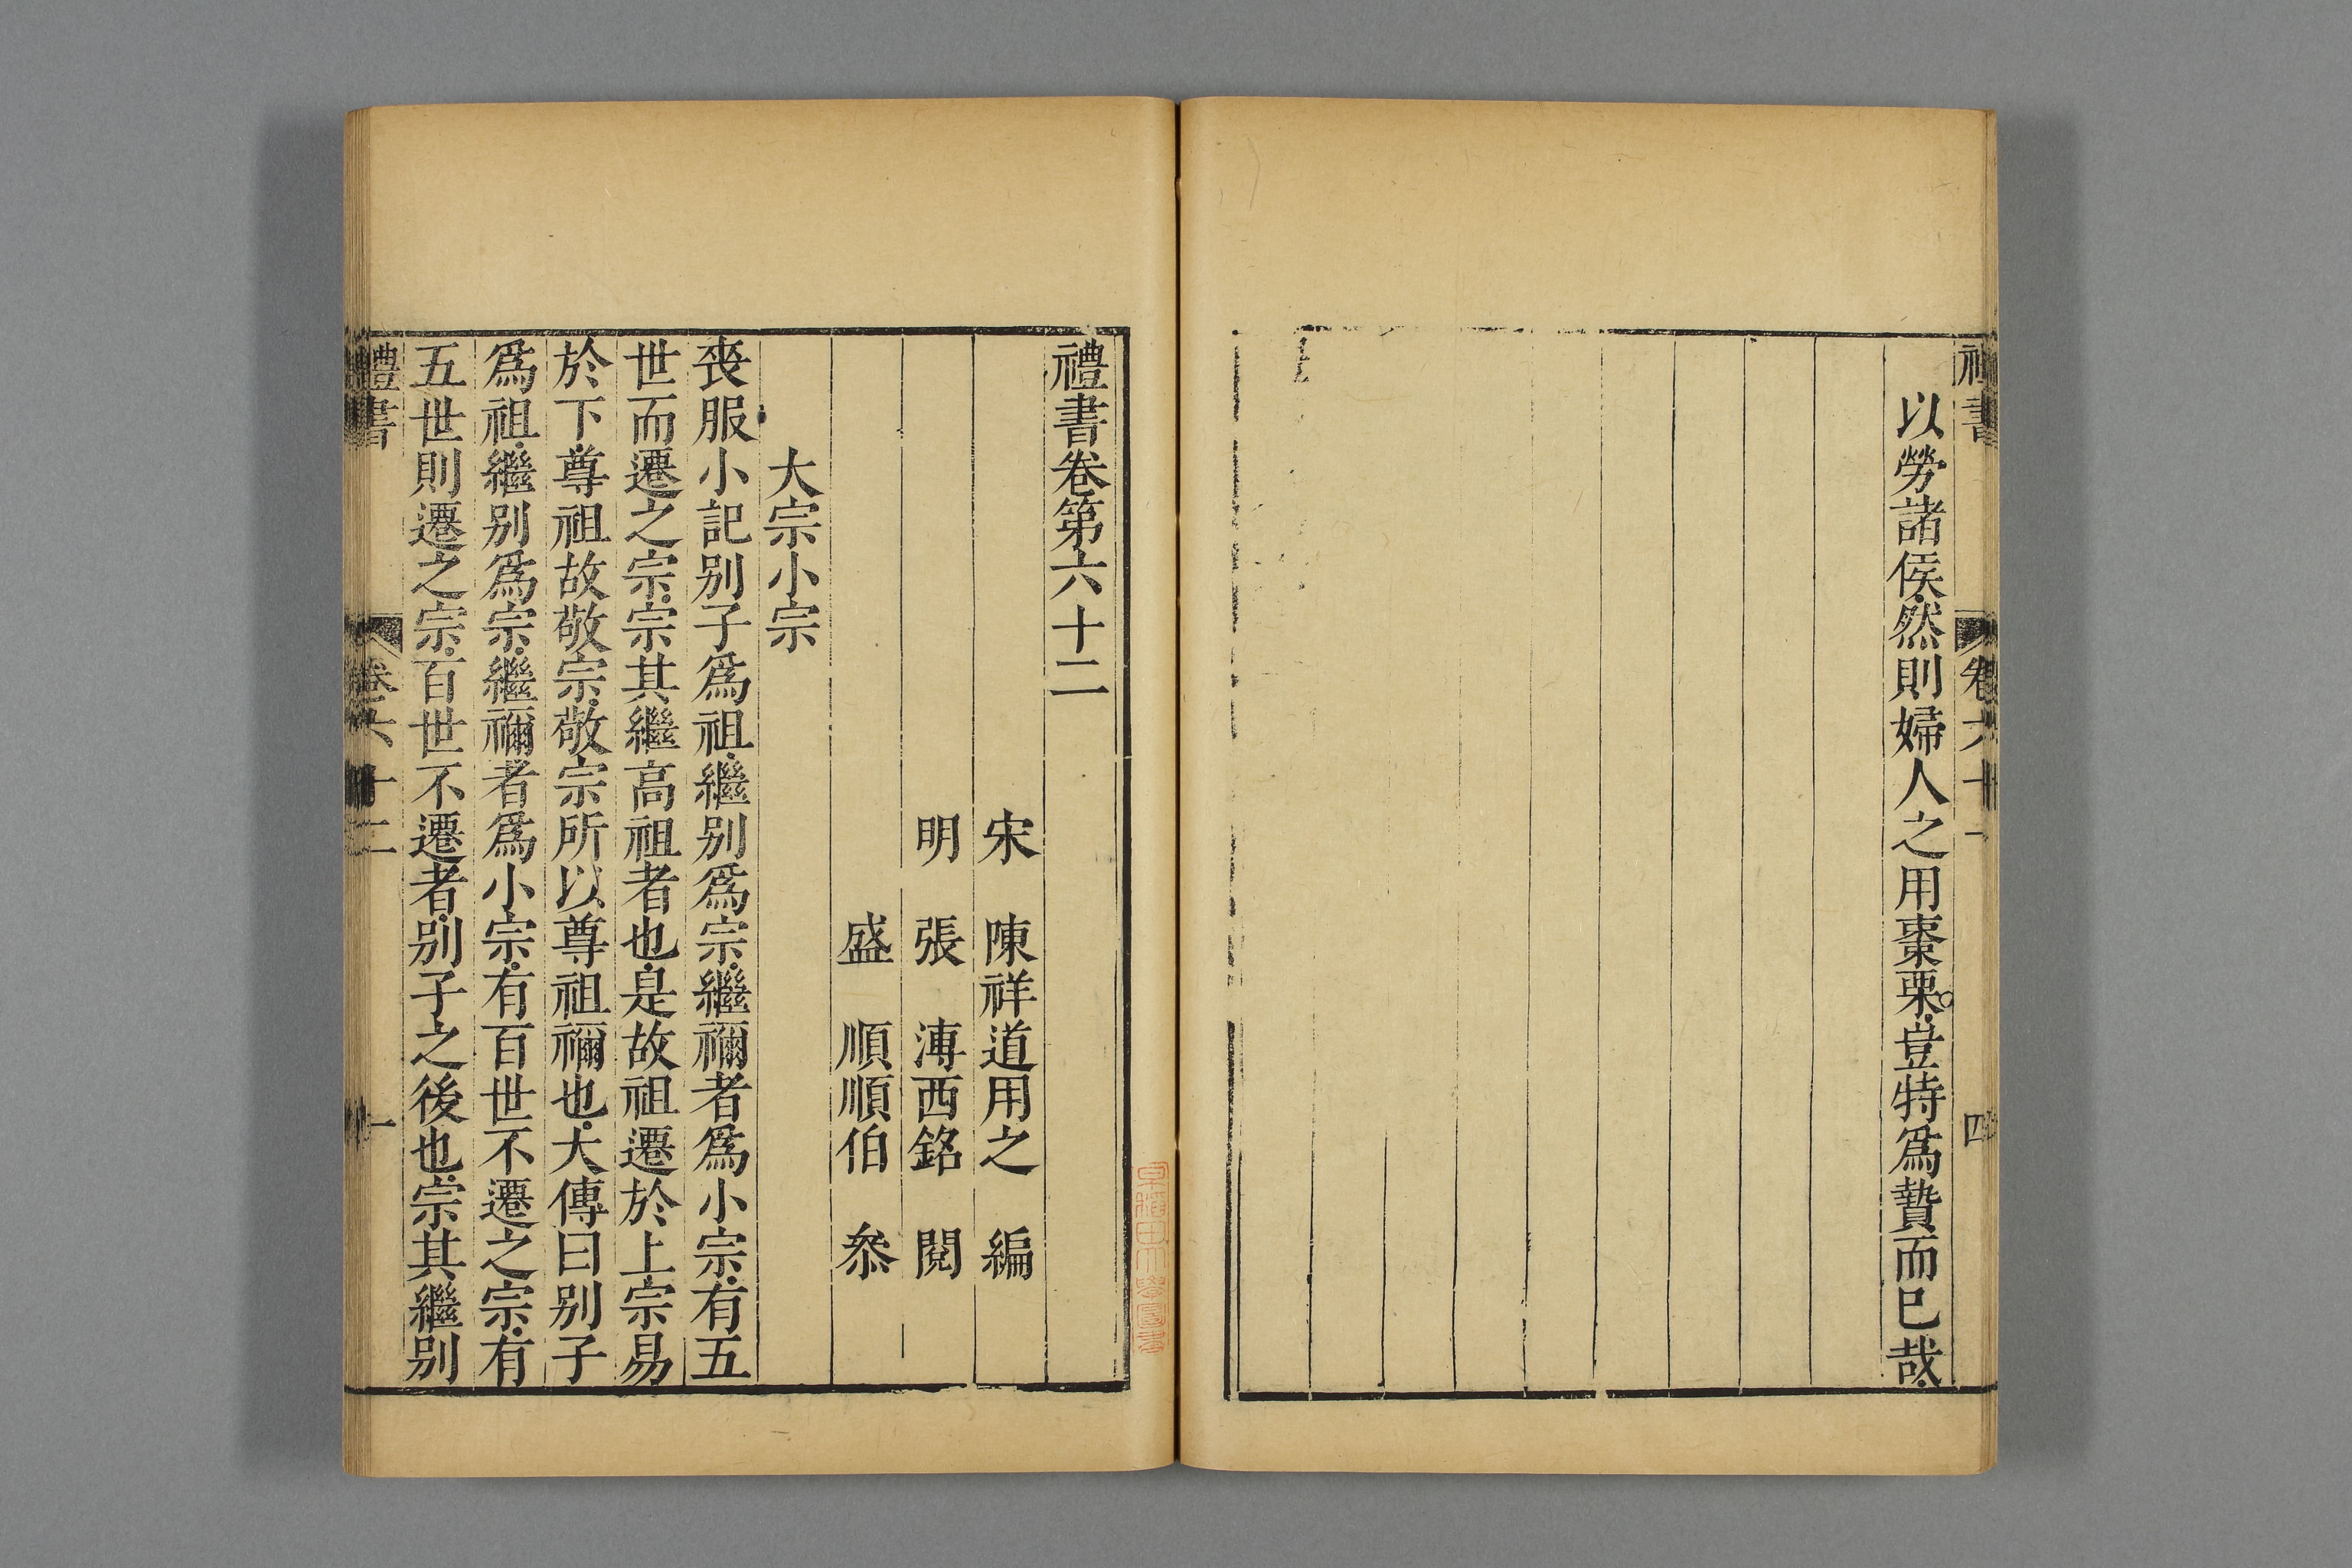 禮書 卷六十一 四
以勞諸侯然則婦人之用棗栗豈特爲贄而已哉
禮書卷第六十二
宋 陳祥道用之 編
明 張 溥西銘 閱
盛 順順伯 叅
大宗小宗
喪服小記别子爲祖繼别爲宗繼禰者爲小宗有五
世而遷之宗宗其繼高祖者也是故祖遷於上宗易
於下尊祖故敬宗敬宗所以尊祖禰也大傳曰别子
爲祖繼别爲宗繼禰者爲小宗有百世不遷之宗有
五世則遷之宗百世不遷者别子之後也宗其繼别
禮書 卷六十二 一
早稻田大學圖書